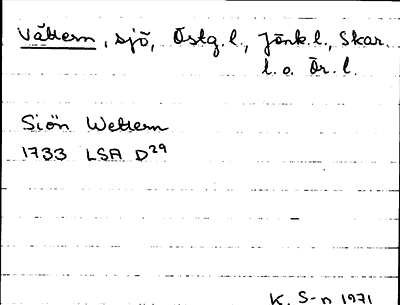 Vättern, sjö, Östg. l., Jönk. l., Skar.
l. o. Ör. l.
Siön Wettern
1733 LSA D29
K. S-n 1971